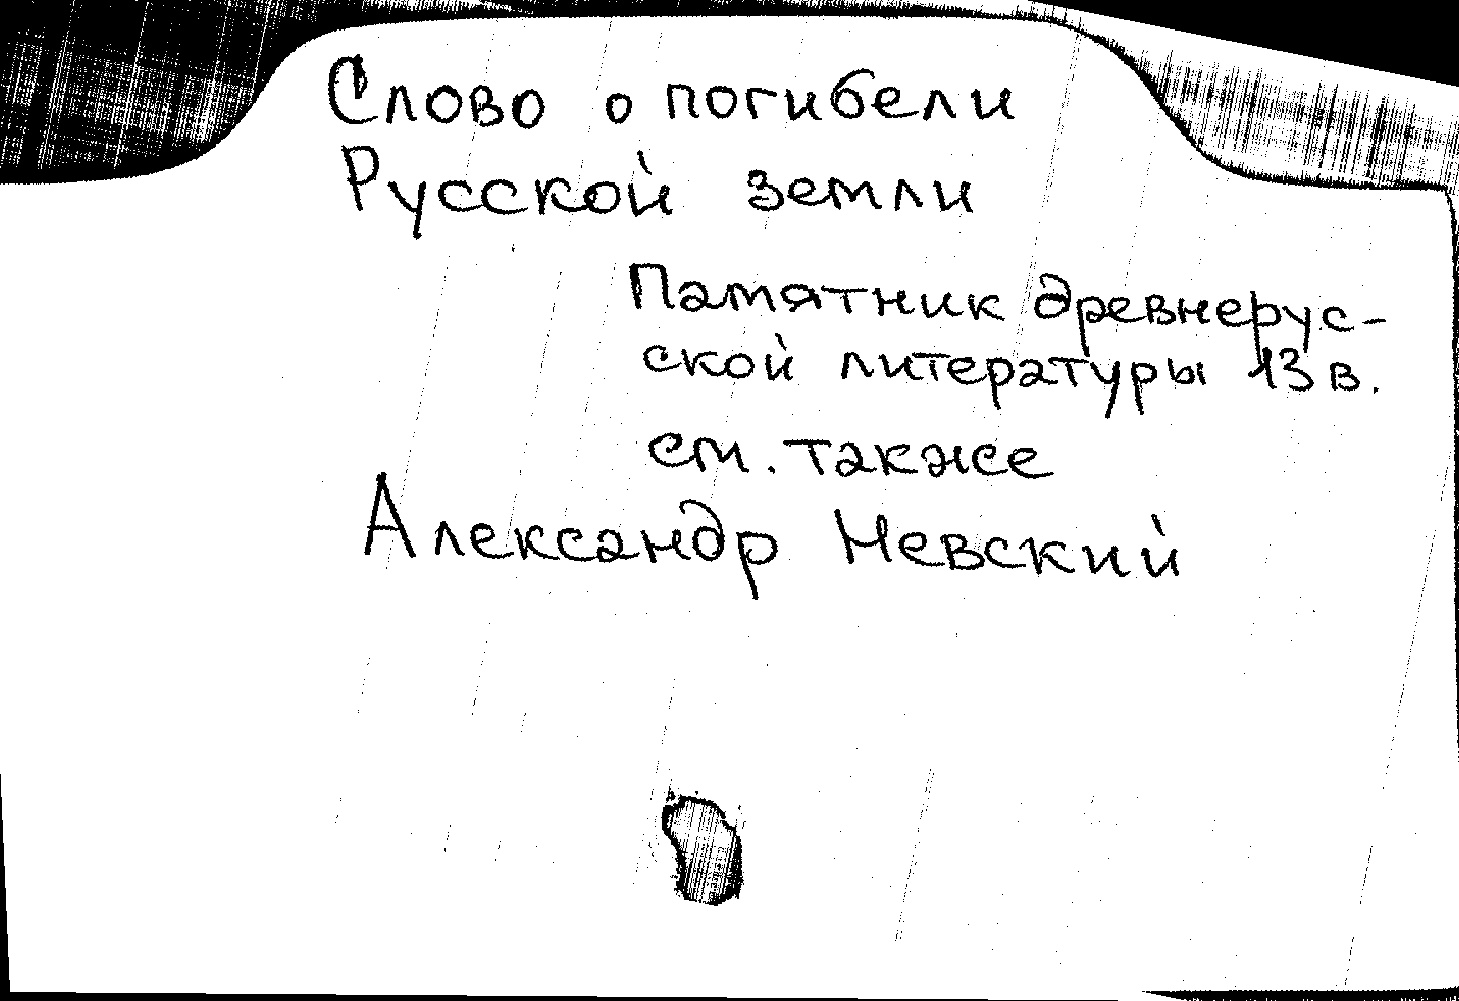 Слово о погибели
Русской земли
Памятник древнерус-
ской литературы 13 в.
см. также
Александр Невский